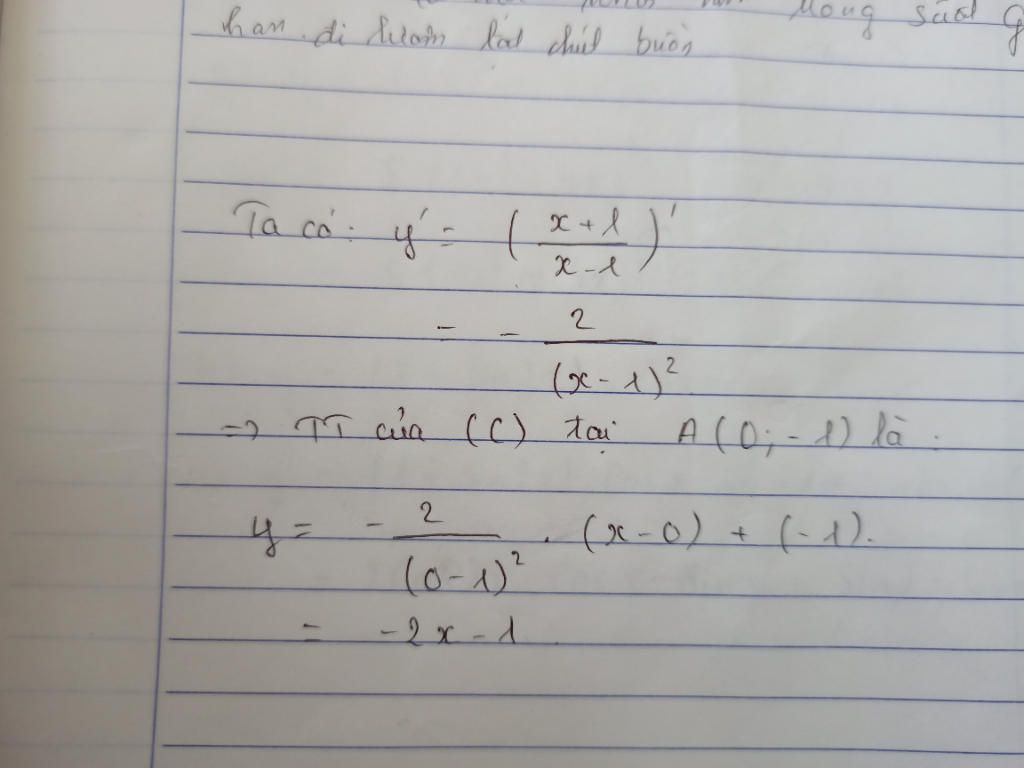 mong sẽ
han. đi
buồn
Ta có: y' = (x+1/x-1)'
= - 2/(x-1)²
=> TT của (C) tại A(0;-1) là.
y = - 2/(0-1)² . (x-0) + (-1).
= -2x-1